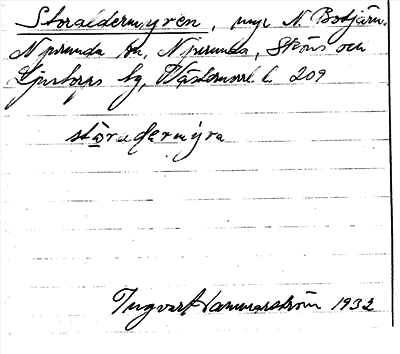 Storaldermyren, myr N. Bosjön.
Njurunda sn, Njurunda, Sköns och
Ljustorps tg, Västernorrl. l. 209
störadermýra
Ingvart Hammarström 1932